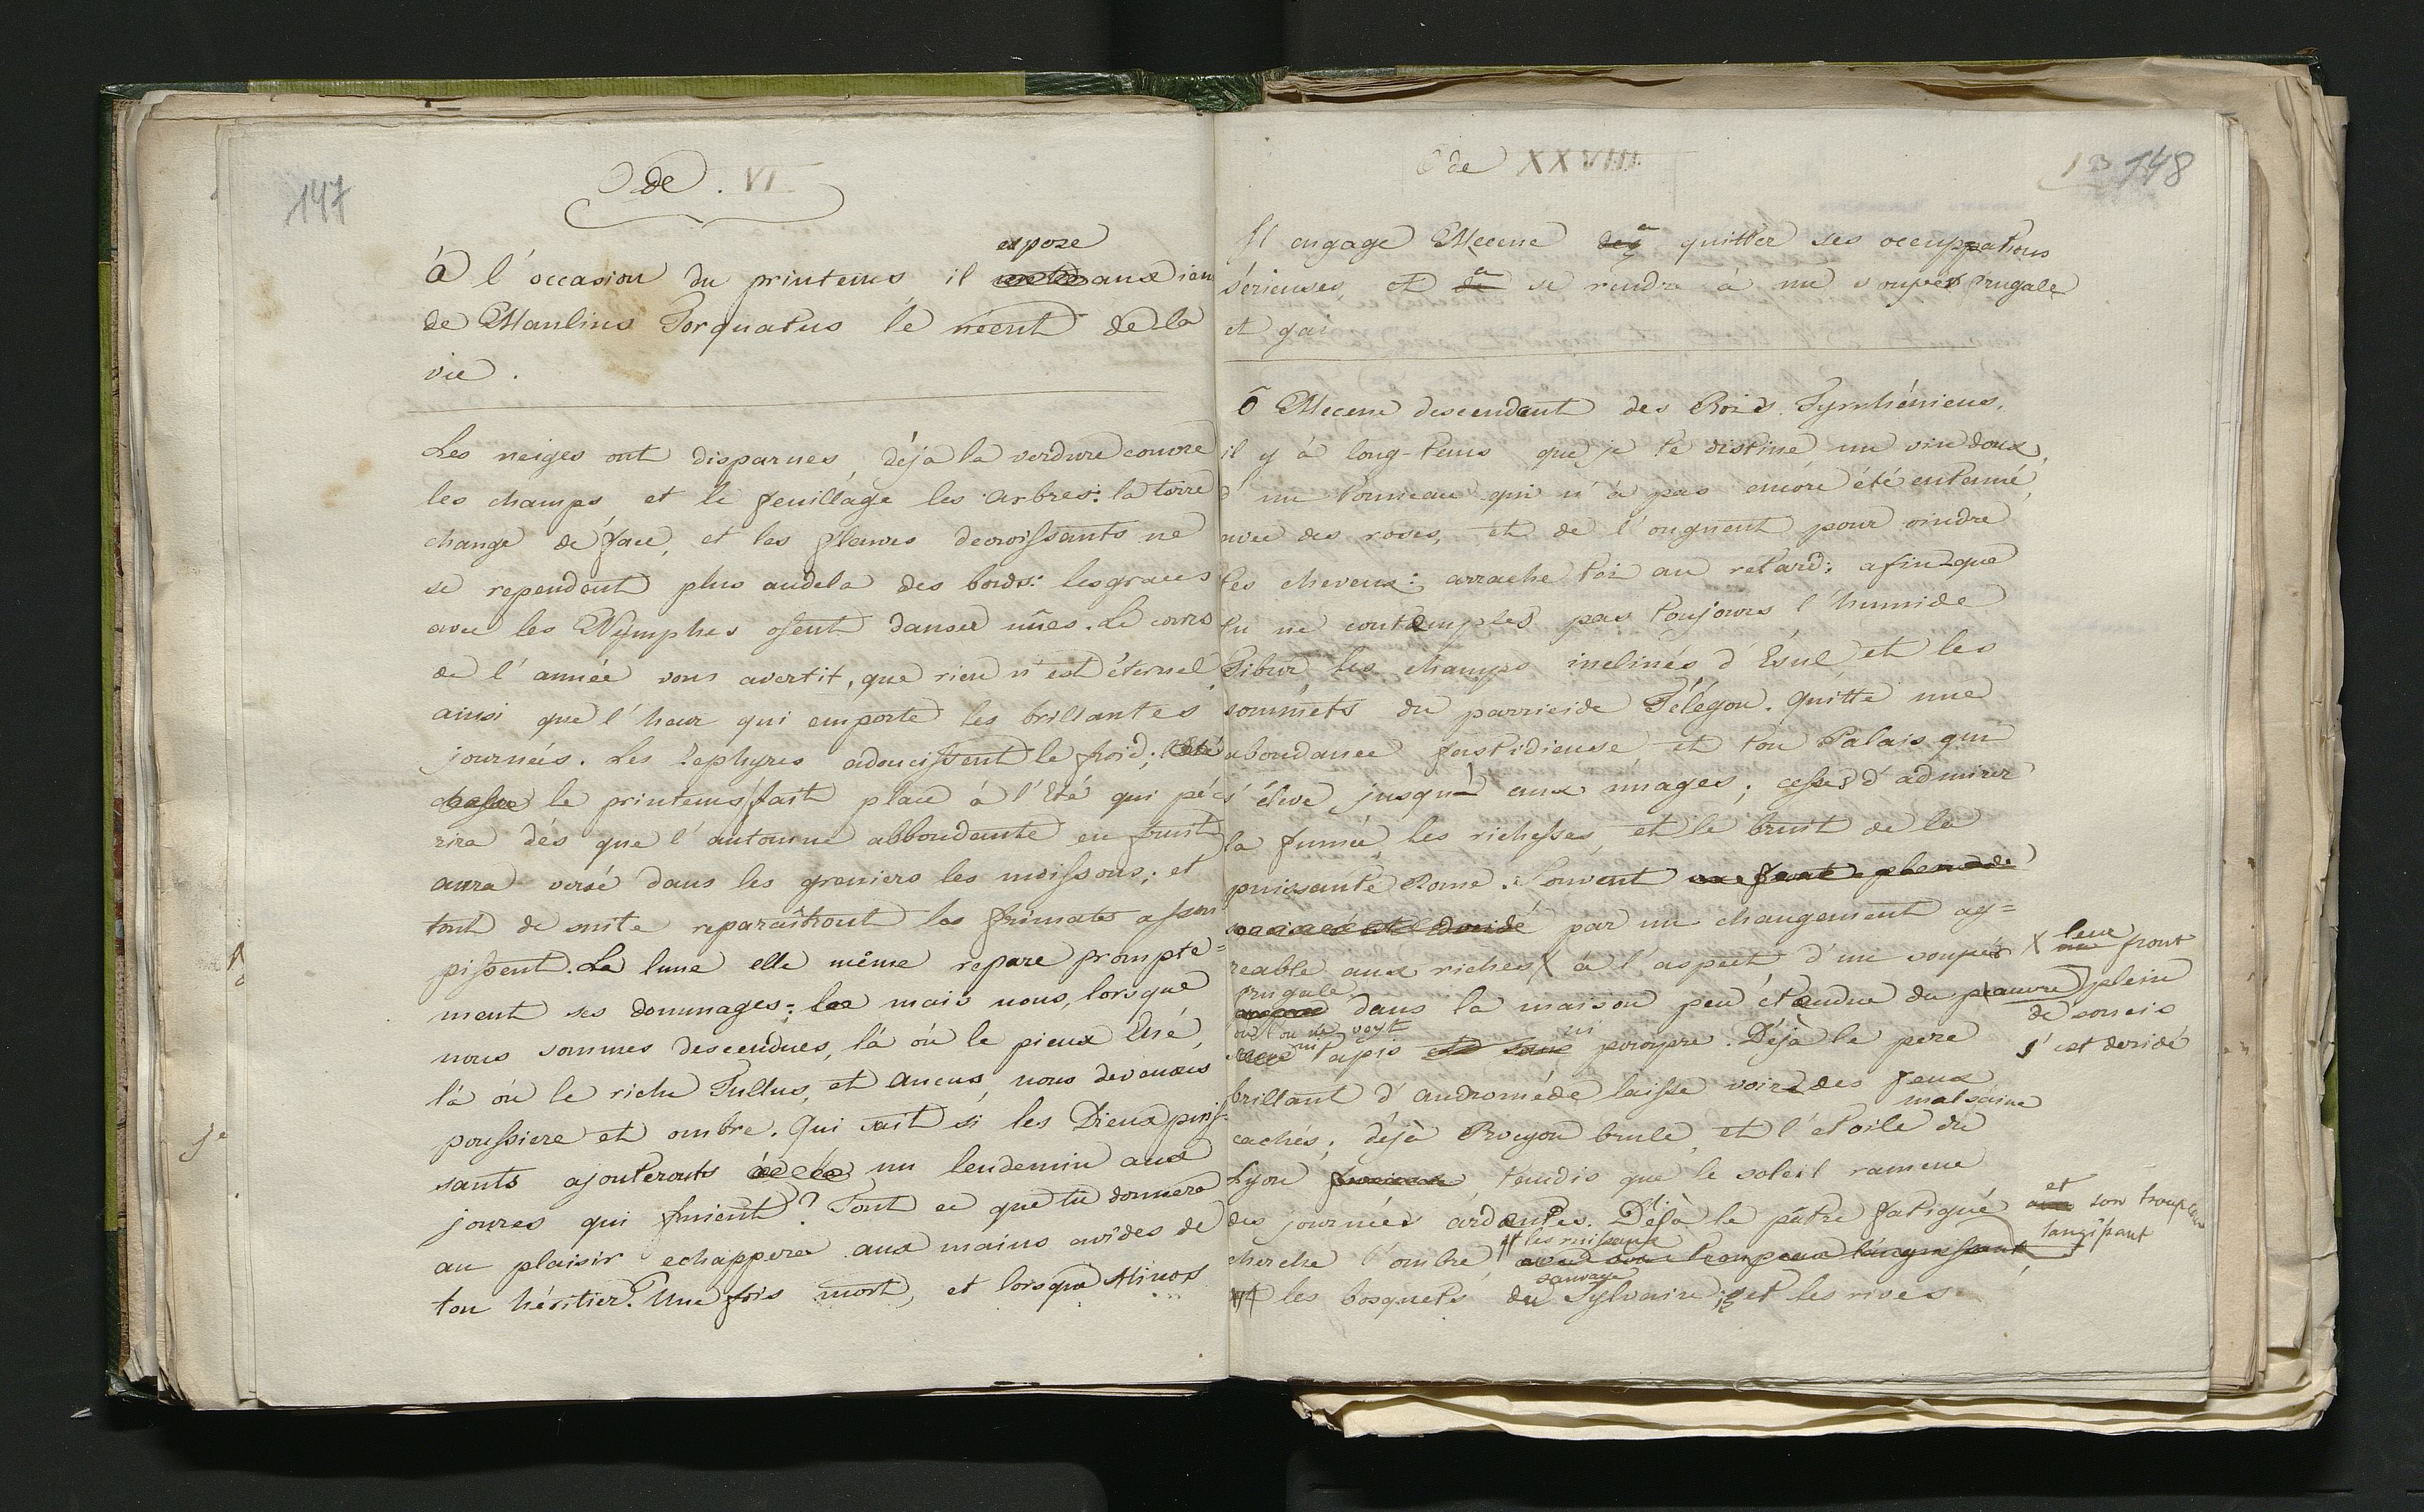 147
Ode. VI
expose
à l'occasion du printems il aux ieux
de Manlius Torquatus le néent de la
vie.
Les neiges ont disparues, déja la verdure couvre
les champs, et le feuillage les arbres: la terre
change de face, et les fleuves decroissants ne
se rependent plus audela des bords: les graces
avec les Nymphes osent danser nües. Le cours
de l'année vous avertit, que rien n'est éternel,
ainsi que l'heur qui emporte les brillantes
journées. Les Zephyres adoucissent le froid; l'été
chasse le printems fait place à l'Eté qui pé-
rira dès que l'automne abbondante en fruit
aura versé dans les greniers les moissons; et
tout de suite reparaîtront les frimats assou
pissent. La lune elle même repare prompte=
ment ses dommages; mais nous, lorsque
nous sommes descendues, là où le pieux Ené,
là où le riche Tullus, et Ancus, nous devenons
poussiere et ombre. Qui sait si les Dieux puis-
sants ajouteronts un lendemin aux
joures qui fuient? Tout ce que tu donnera
au plaisir echappera aux mains avides de
ton héritier. Une fois mort, et lorsque Minos
148
Ode XXVIII
Il engage Mecene à quitter ses occuppations
sérieuses, et à se rendre à un souper frugale
et gai
ô Mecene descendant des Rois Tyrrhéniens,
il y à long-tems que je te distine un vin doux,
d'un tonneau qui n'à pas encore été entamé,
avec des roses, et de l'onguent pour oindre
tes cheveux: arrache toi au retard; afin que
tu ne contemples pas toujours l'humide
Tibur, les champs inclinés d'Esul et les
sommets du parricide Télégon. Quitte une
abondance fastidieuse et ton Palais qui
s'éleve jusqu'à aux nuages; cesse d'admirer
la fumée, les richesses, et le bruit de la
puissante Rome. Souvent
par un changement ag=
reable aux riches X à l'aspect d'un souper
X leur front
frugale
dans la maison peu étendue du pauvre
plein
de soucis
où l'on ne voyt
ni tapis ni pourpre. Déjà le pere
s'est deridé
brillant d'Andromède laisse voir des feux
malsaine
cachés; déjà Procyon brule, et l'etoile du
Lyon tandis que le soleil ramene
des journées ardentes. Déjà le pâtre fatigué
et son troupeau
langissant
# les ruisseaux
cherche l'ombre, avec son troupeau languissant,
sauvage
# les bosquets du Sylvaire et les rives